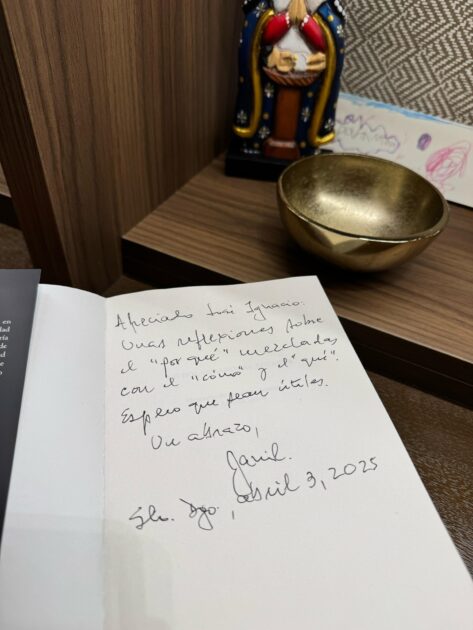 Apreciado José Ignacio:
Unas reflexiones sobre
el "por qué" mezcladas
con el "cómo" y el "qué".
Espero que sean útiles.
Un abrazo,
Sto. Dgo., abril 3, 2025
en
dad
ría
de
d
e